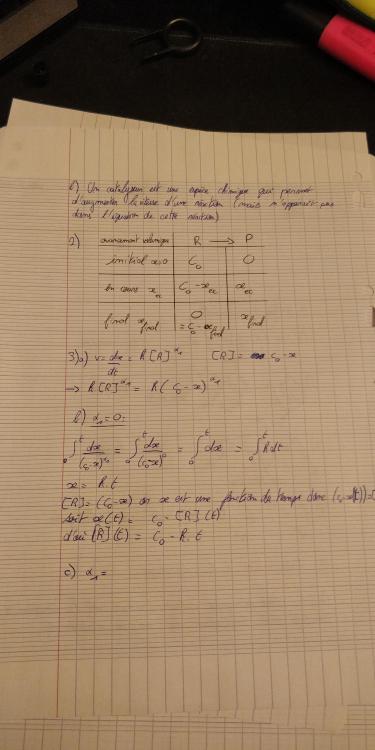 1) Un catalyseur est une espèce chimique qui permet
d'augmenter la vitesse d'une réaction (mais n'apparaît pas
dans l'équation de cette réaction)
2) avancement volumique R → P
initial x=0 C₀ 0
en cours xec C₀-xec xec
final xfinal 0 = C₀-xfinal xfinal
3)a) v = dx/dt = k[R]^α₁ [R] = C₀-x
→ k[R]^α₁ = k(C₀-x)^α₁
b) α₁=0:
∫₀ᵗ dx/(C₀-x)^α₁ = ∫₀ᵗ dx/(C₀-x)⁰ = ∫₀ᵗ dx = ∫₀ᵗ k dt
x = k t
[R] = (C₀-x) or x est une fonction du temps donc (C₀-x(t))=
soit x(t) = C₀ - [R](t)
d'où [R](t) = C₀ - k.t
c) α₁=